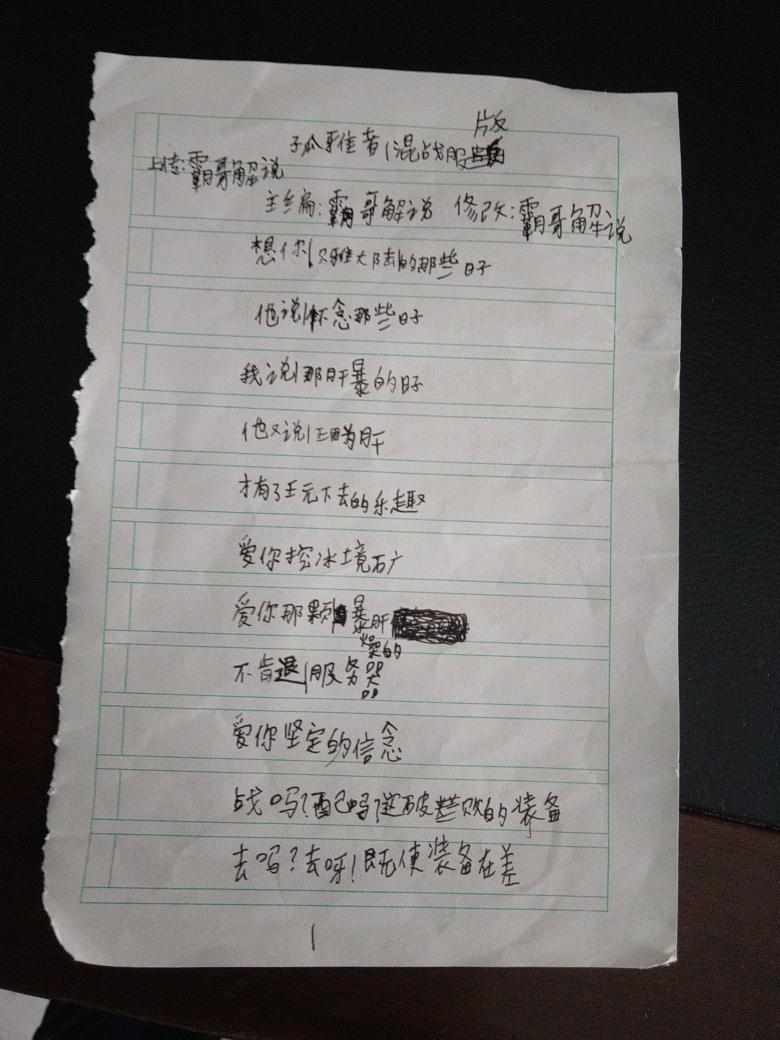 孤雅者(混战服版
上传:霸哥解说
主编:霸哥解说 修改:霸哥解说
想你(双雅大陆的那些日子
他说怀念那些日子
我说那肝暴的日子
他又说正因为肝
才有了玩下去的乐趣
爱你挖冰境矿
爱你那颗暴肝
爆的
不肯退服务器
爱你坚定的信念
战吗?配吗?这破烂败的装备
去吗?去呀!既使装备在差
1